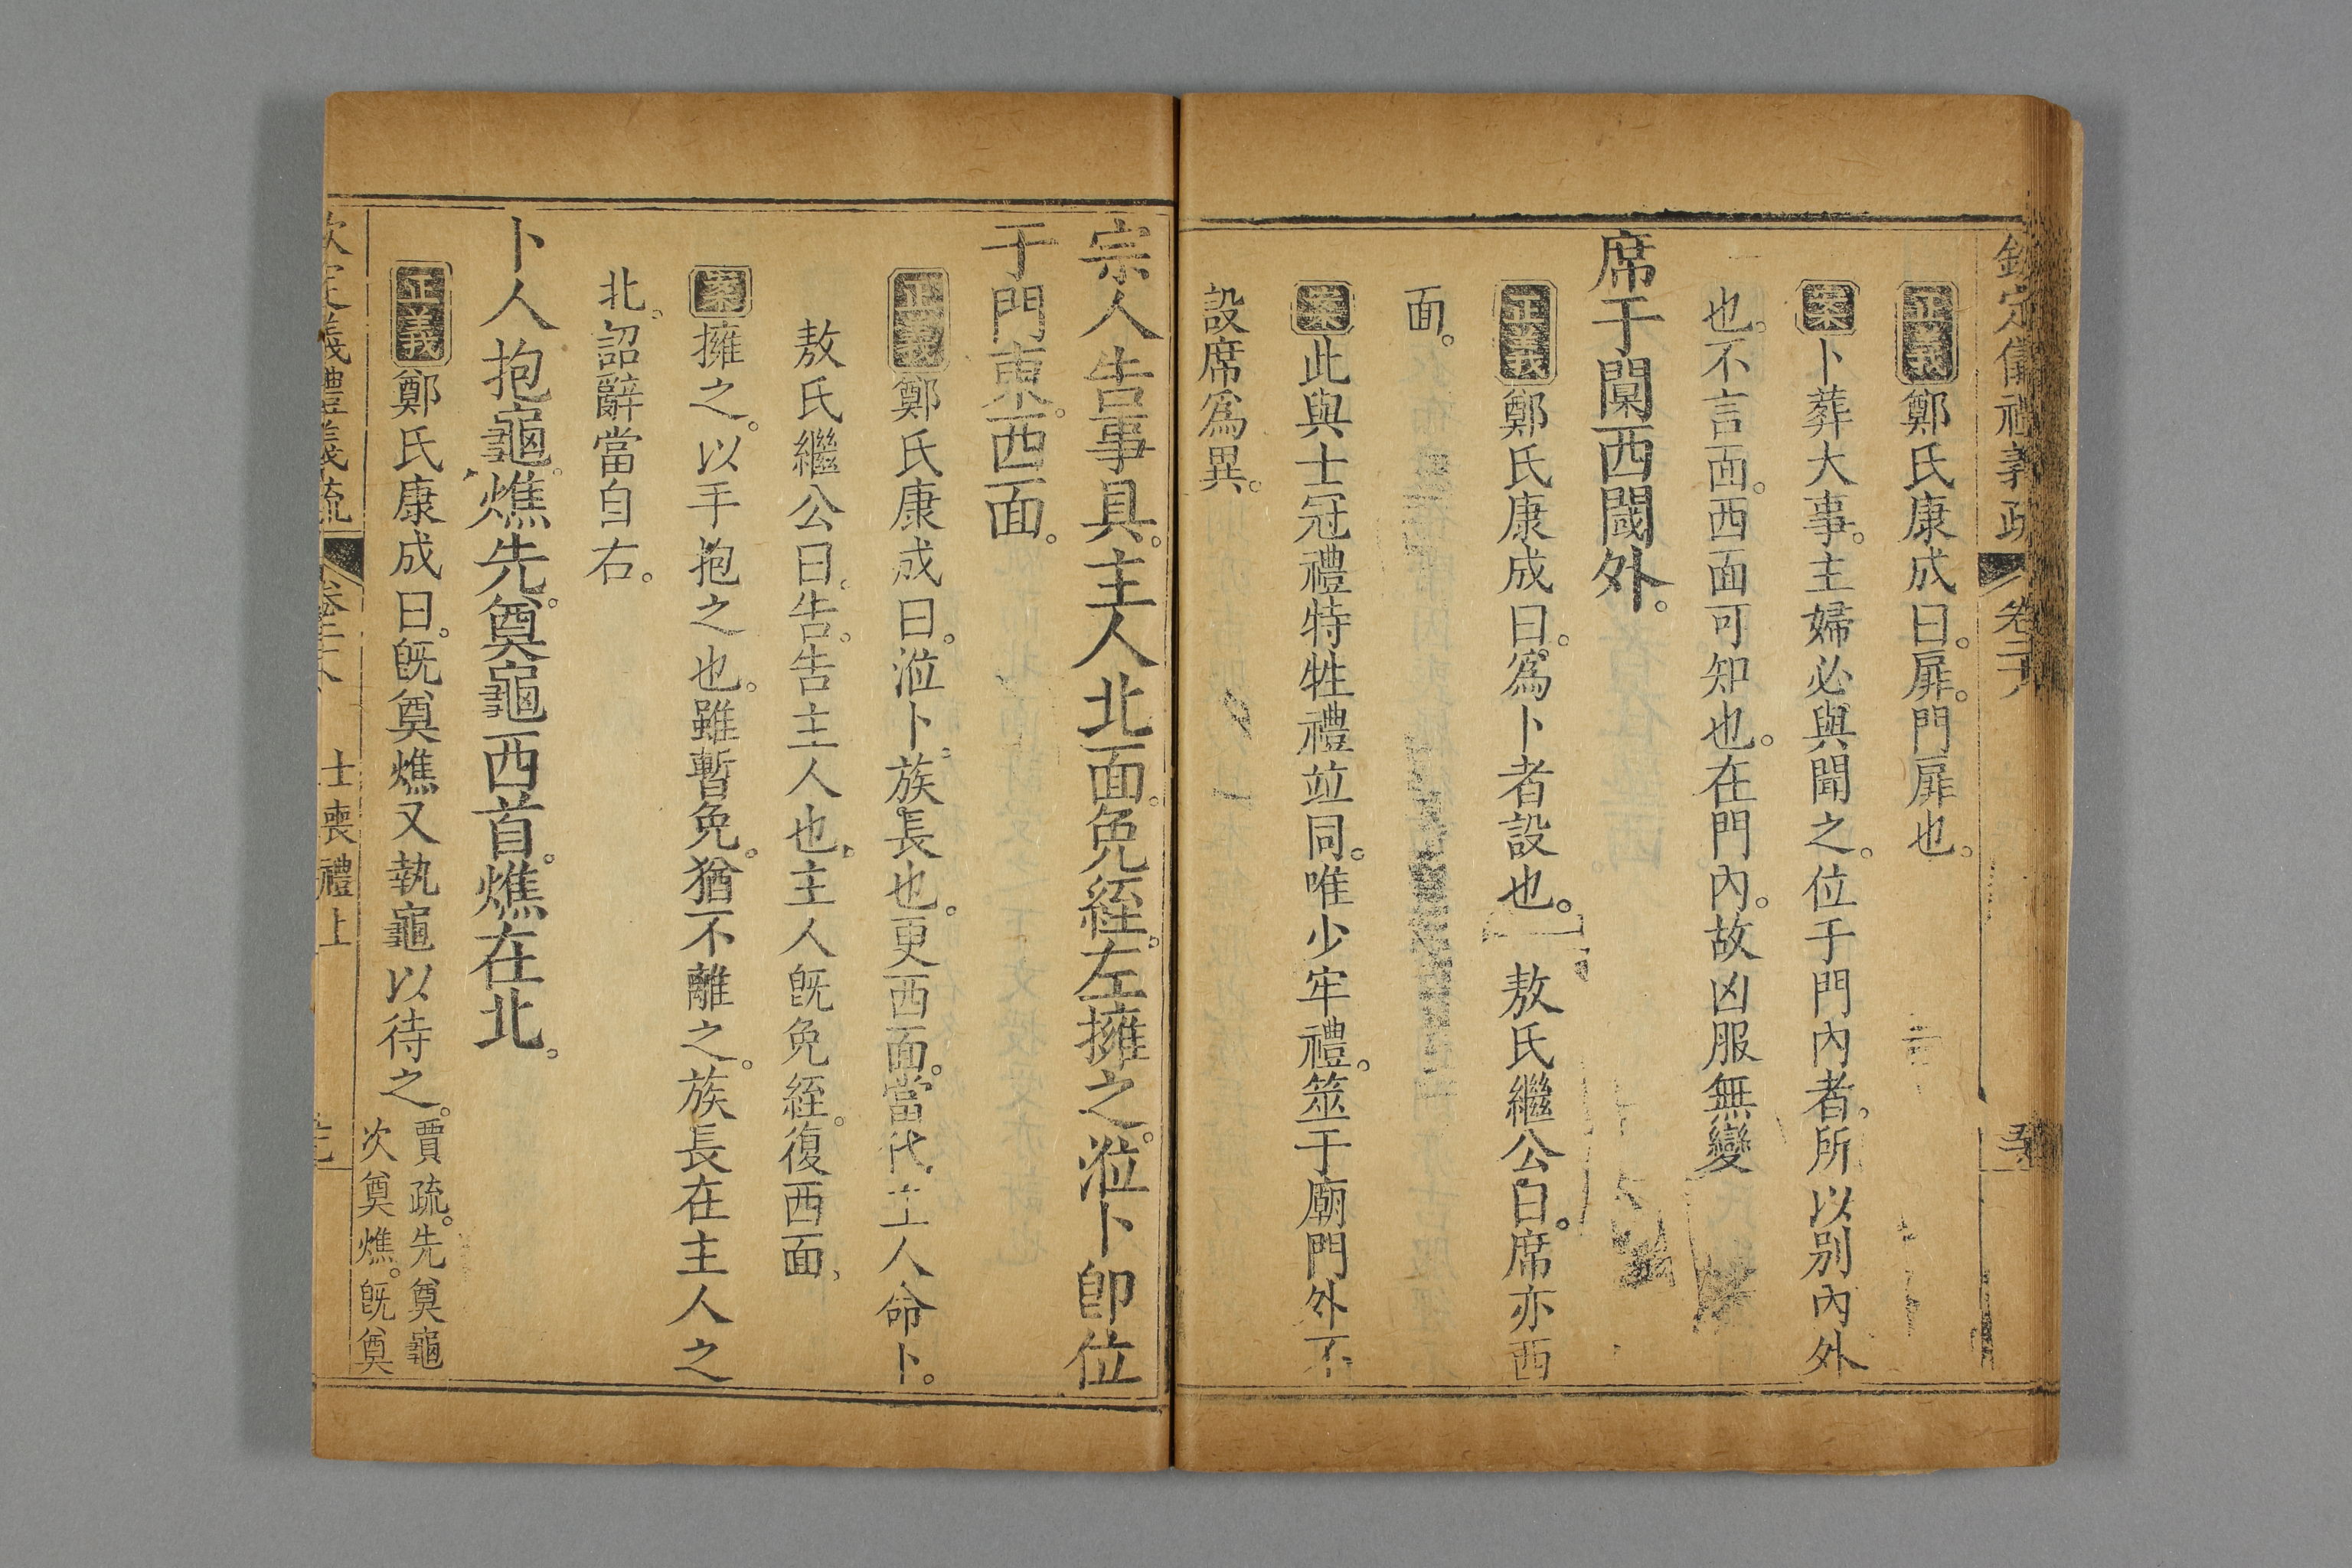 欽定儀禮義疏 卷二十八
正義鄭氏康成曰。扉。門扉也。
案卜葬大事。主婦必與聞之。位于門內者。所以別內外
也。不言面。西面可知也。在門內。故凶服無變
席于闑西閾外。
正義鄭氏康成曰。爲卜者設也。 敖氏繼公曰。席亦西
面。
案此與士冠禮特牲禮竝同。唯少牢禮。筮于廟門外不
設席爲異。
宗人告事具。主人北面。免絰。左擁之。涖卜卽位
于門東。西面。
正義鄭氏康成曰。涖卜。族長也。更西面。當代主人命卜。
敖氏繼公曰。告。告主人也。主人旣免絰。復西面、
案擁之。以手抱之也。雖暫免。猶不離之。族長在主人之
北。詔辭當自右。
卜人抱龜燋。先奠龜西首。燋在北。
正義鄭氏康成曰。旣奠燋又執龜以待之。賈疏。先奠龜
次奠燋。旣奠
欽定儀禮義疏 卷二十八 士喪禮上